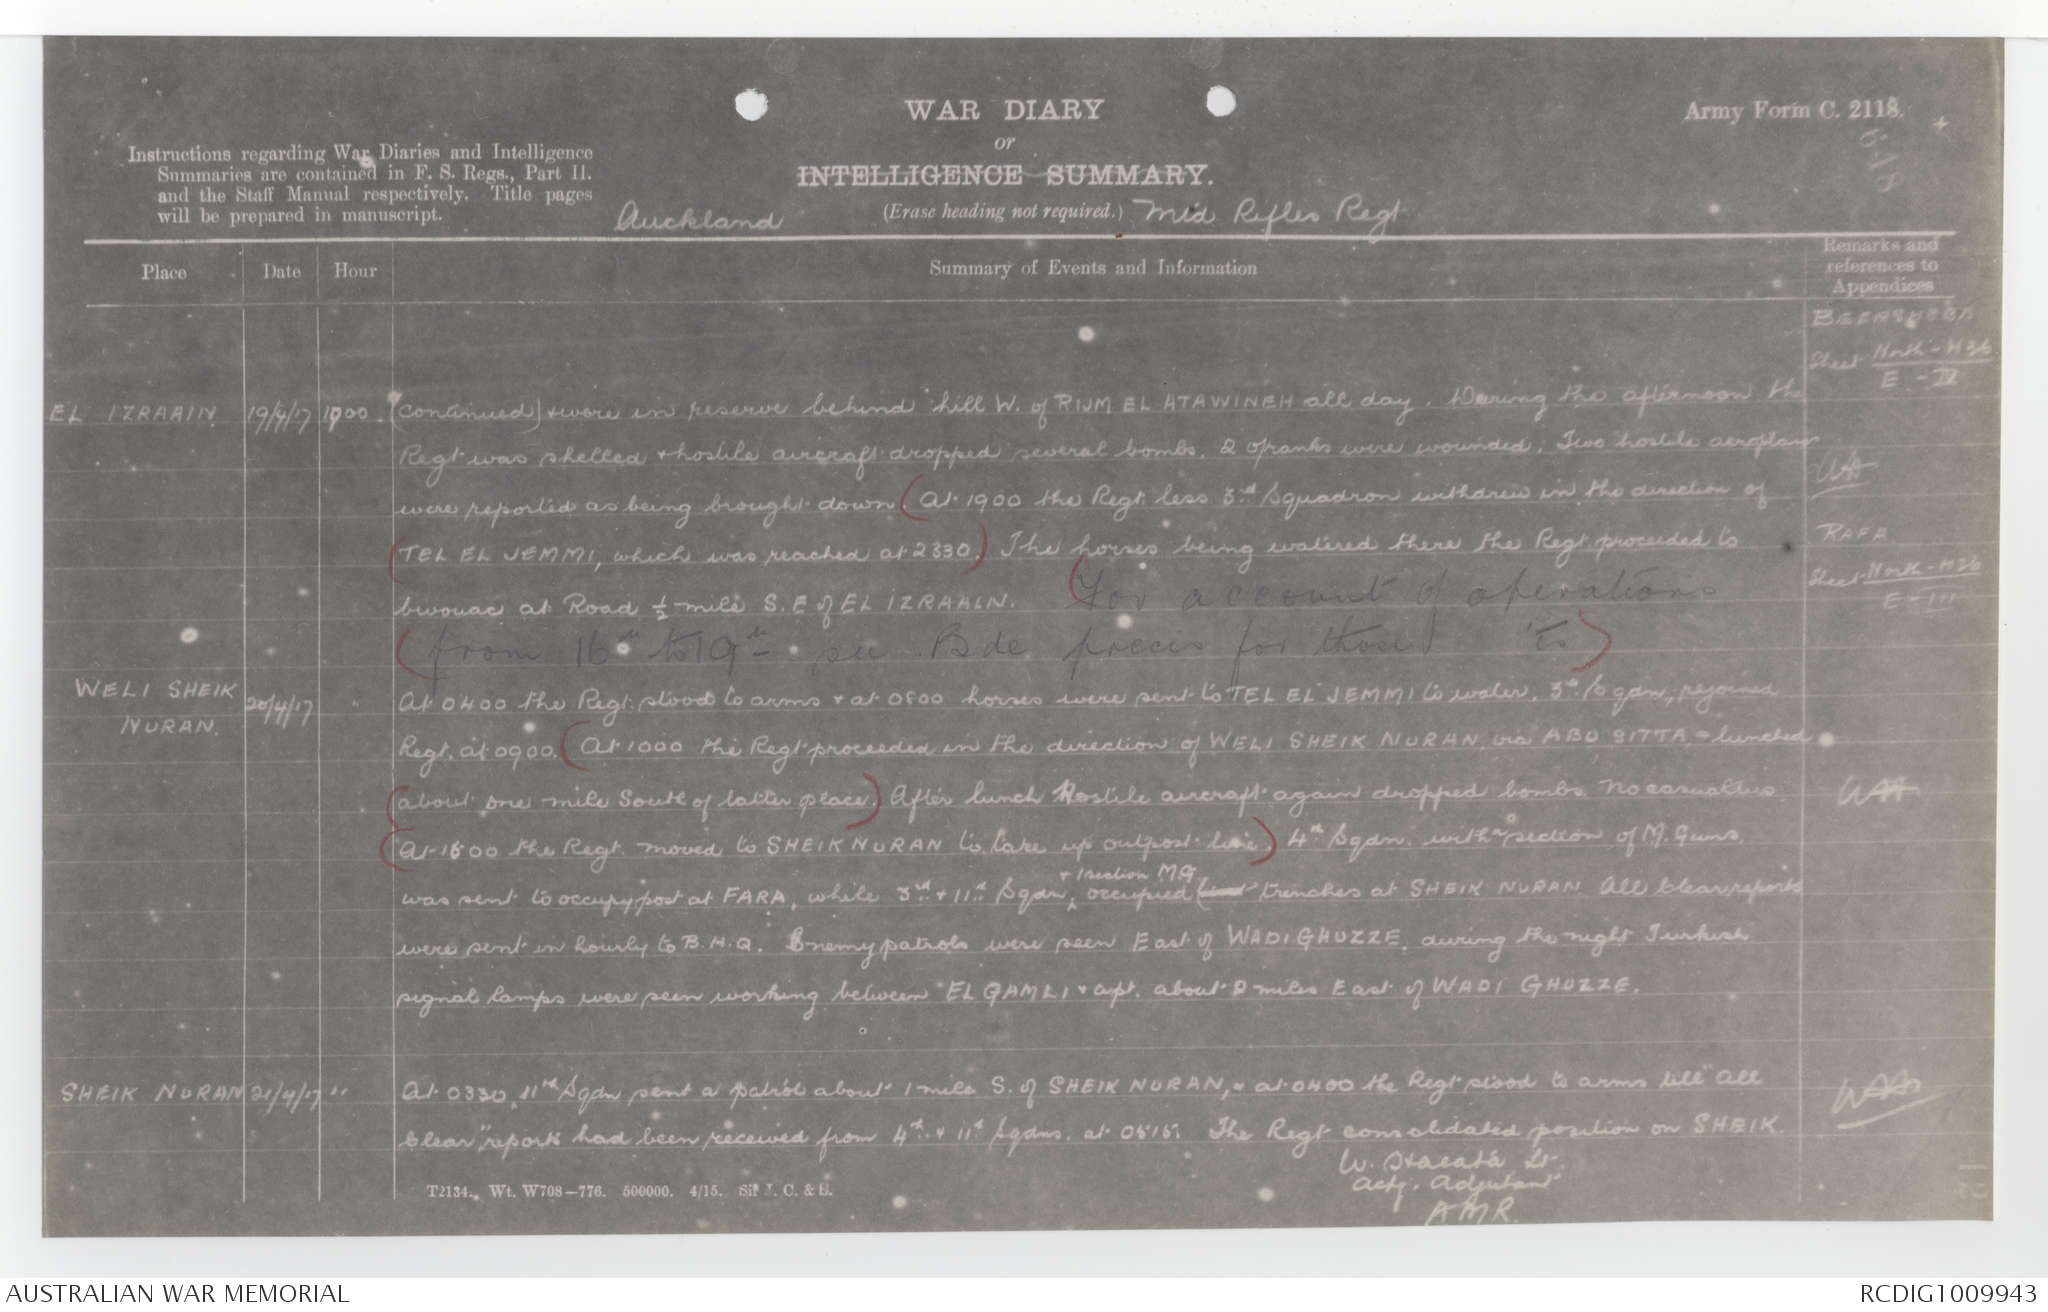 WAR DIARY
or
INTELLIGENCE SUMMARY.
(Erase heading not required.)
Army Form C. 2118.
Instructions regarding War Diaries and Intelligence
Summaries are contained in F. S. Regs., Part II.
and the Staff Manual respectively. Title pages
will be prepared in manuscript.
Auckland Mtd Rifles Regt
Place Date Hour Summary of Events and Information Remarks and
references to
Appendices
BEERSHEBA
Sheet North - H36
E - IV
EL IZRAAIN 19/4/17 1900. (continued) & were in reserve behind hill W. of RIJM EL ATAWINEH all day. During the afternoon the
Regt was shelled & hostile aircraft dropped several bombs. 2 o/ranks were wounded. Two hostile aeroplanes
were reported as being brought down. (At 1900 the Regt less 3rd Squadron withdrew in the direction of
TEL EL JEMMI, which was reached at 2330.) The horses being watered there the Regt proceeded to
RAFA
bivouac at Road ½ mile S.E of EL IZRAAIN. (For account of operations
Sheet North - H36
E - III
(from 16th to 19th see Bde precis for those)
WELI SHEIK
NURAN. 20/4/17 " At 0400 the Regt. stood to arms & at 0800 horses were sent to TEL EL JEMMI to water, 3rd Sqdn, rejoined
Regt. at 0900. (At 1000 the Regt proceeded in the direction of WELI SHEIK NURAN, via ABU SITTA, & lunched
about one mile South of latter place.) After lunch Hostile aircraft again dropped bombs. No casualties.
(At 1500 the Regt. moved to SHEIK NURAN to take up outpost line.) 4th Sqdn. with a section of M. Guns.
& 1 section MG
was sent to occupy post at FARA, while 3rd & 11th Sqdn, occupied trenches at SHEIK NURAN. All Clear, reports
were sent in hourly to B.H.Q. Enemy patrols were seen East of WADI GHUZZE, during the night Turkish
signal lamps were seen working between EL GAMLI & apt. about 2 miles East of WADI GHUZZE.
SHEIK NURAN 21/4/17 " At 0330, 11th Sqdn sent a patrol about 1 mile S. of SHEIK NURAN, & at 0400 the Regt stood to arms till "All
Clear" reports had been received from 4th & 11th Sqdns. at 0515. The Regt consolidated position on SHEIK.
Lt.
Actg. Adjutant
AMR.
T2134. Wt. W708—776. 500000. 4/15. Sir J. C. & S.
AUSTRALIAN WAR MEMORIAL
RCDIG1009943